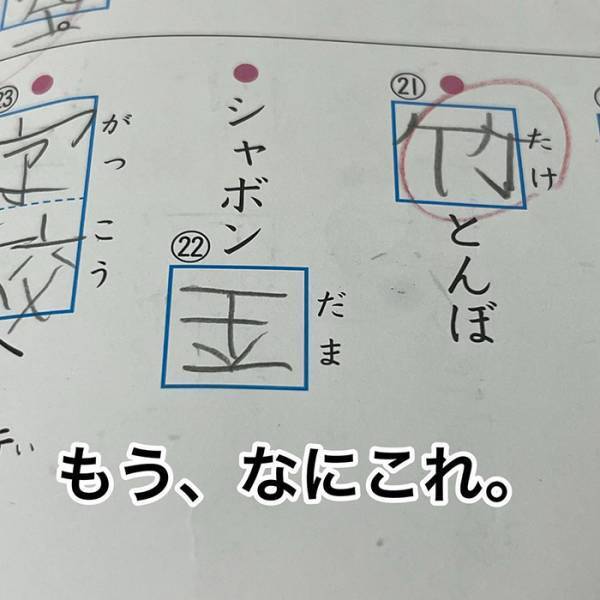 ㉑
竹とんぼ
たけ
シャボン
㉒
だま
学校
がっこう
もう、なにこれ。